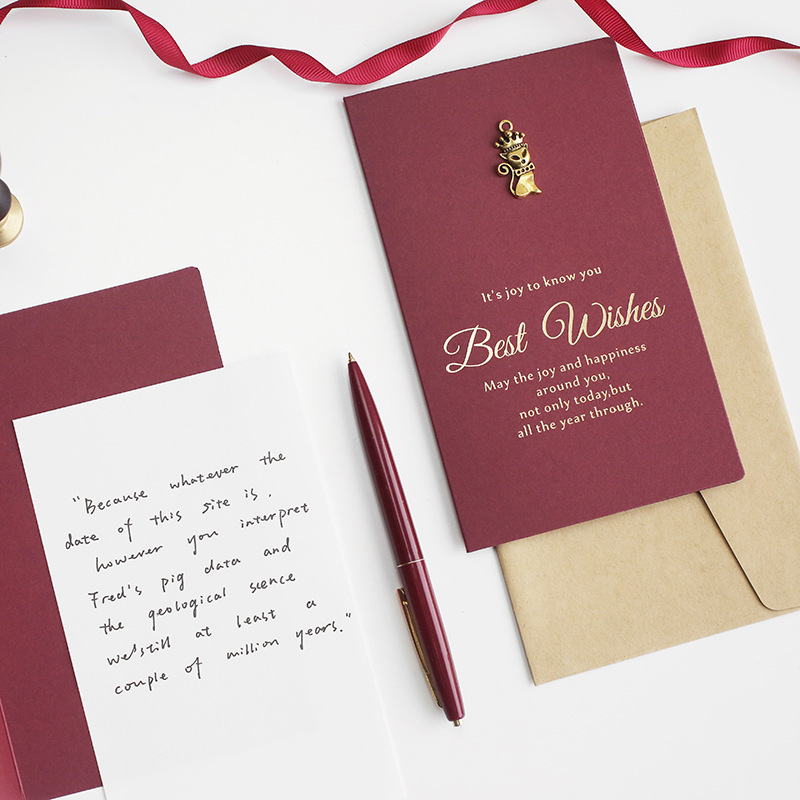 It's joy to know you
Best Wishes
May the joy and happiness
around you,
not only today,but
all the year through.
"Because whatever the
date of this site is.
however you interpret
Fred's pig data and
the geological scence
we'still at least a
couple of million years."